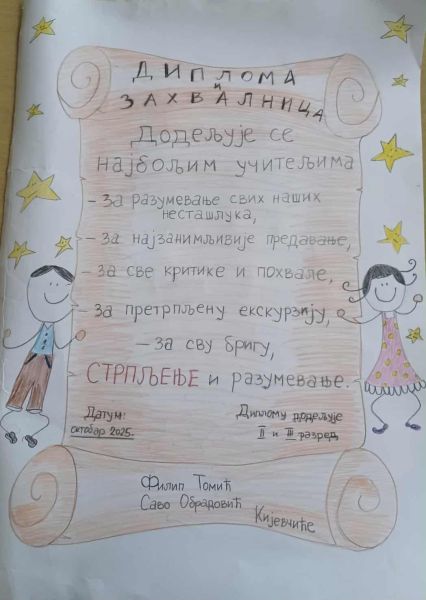 ДИПЛОМА
и
ЗАХВАЛНИЦА
Додељује се
најбољим учитељима
- за разумевање свих наших
несташлука,
- за најзанимљивије предавање,
- за све критике и похвале,
- за претрпљену екскурзију,
- за сву бригу,
СТРПЉЕЊЕ и разумевање.
Датум:
октобар 2025.
Диплому додељује
II и III разред
Филип Томић
Саво Обрадовић
Кијевчиће